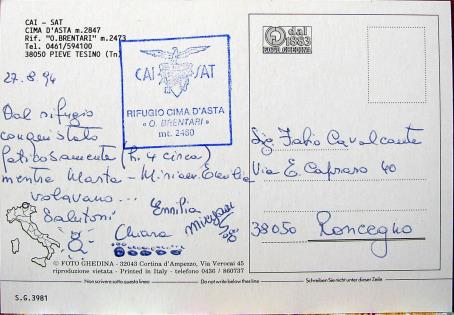 CAI - SAT
CIMA D'ASTA m.2847
Rif. "O.BRENTARI" m.2473
Tel. 0461/594100
38050 PIEVE TESINO (Tn)
27.8.94
CAI SAT
RIFUGIO CIMA D'ASTA
« O. BRENTARI »
mt. 2480
dal 1883
FOTO GHEDINA
Dal rifugio
conquistato
faticosamente (h. 4 circa)
mentre Marta - Miriam
volavano...
Salutoni
Emilia
Chiara
Sig. Fabio Cavalcante
Via E. Capraro 40
38050 Roncegno
© FOTO GHEDINA - 32043 Cortina d'Ampezzo, Via Verocai 45
riproduzione vietata - Printed in Italy - telefono 0436 / 860737
Non scrivere sotto questa linea
Do not write below the line
Schreiben Sie nicht unter dieser Zeile
S.G.3981